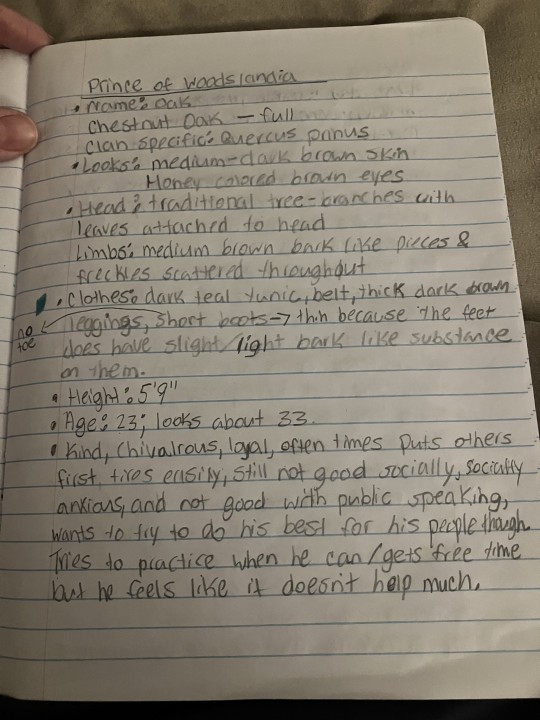 Prince of Woodslandia
• Name: Oak
Chestnut Oak - full
Clan specific: Quercus prinus
• Looks: medium-dark brown skin
Honey colored brown eyes
• Head: traditional tree-branches with
leaves attached to head
Limbs: medium brown bark like pieces &
freckles scattered throughout
• Clothes: dark teal tunic, belt, thick dark brown
leggings, short boots → thin because the feet
no toe
does have slight/light bark like substance
on them.
• Height: 5'9"
• Age: 23; looks about 33.
• Kind, chivalrous, loyal, often times puts others
first, tires easily, still not good socially, socially
anxious, and not good with public speaking,
wants to try to do his best for his people though.
Tries to practice when he can/gets free time
but he feels like it doesn't help much.